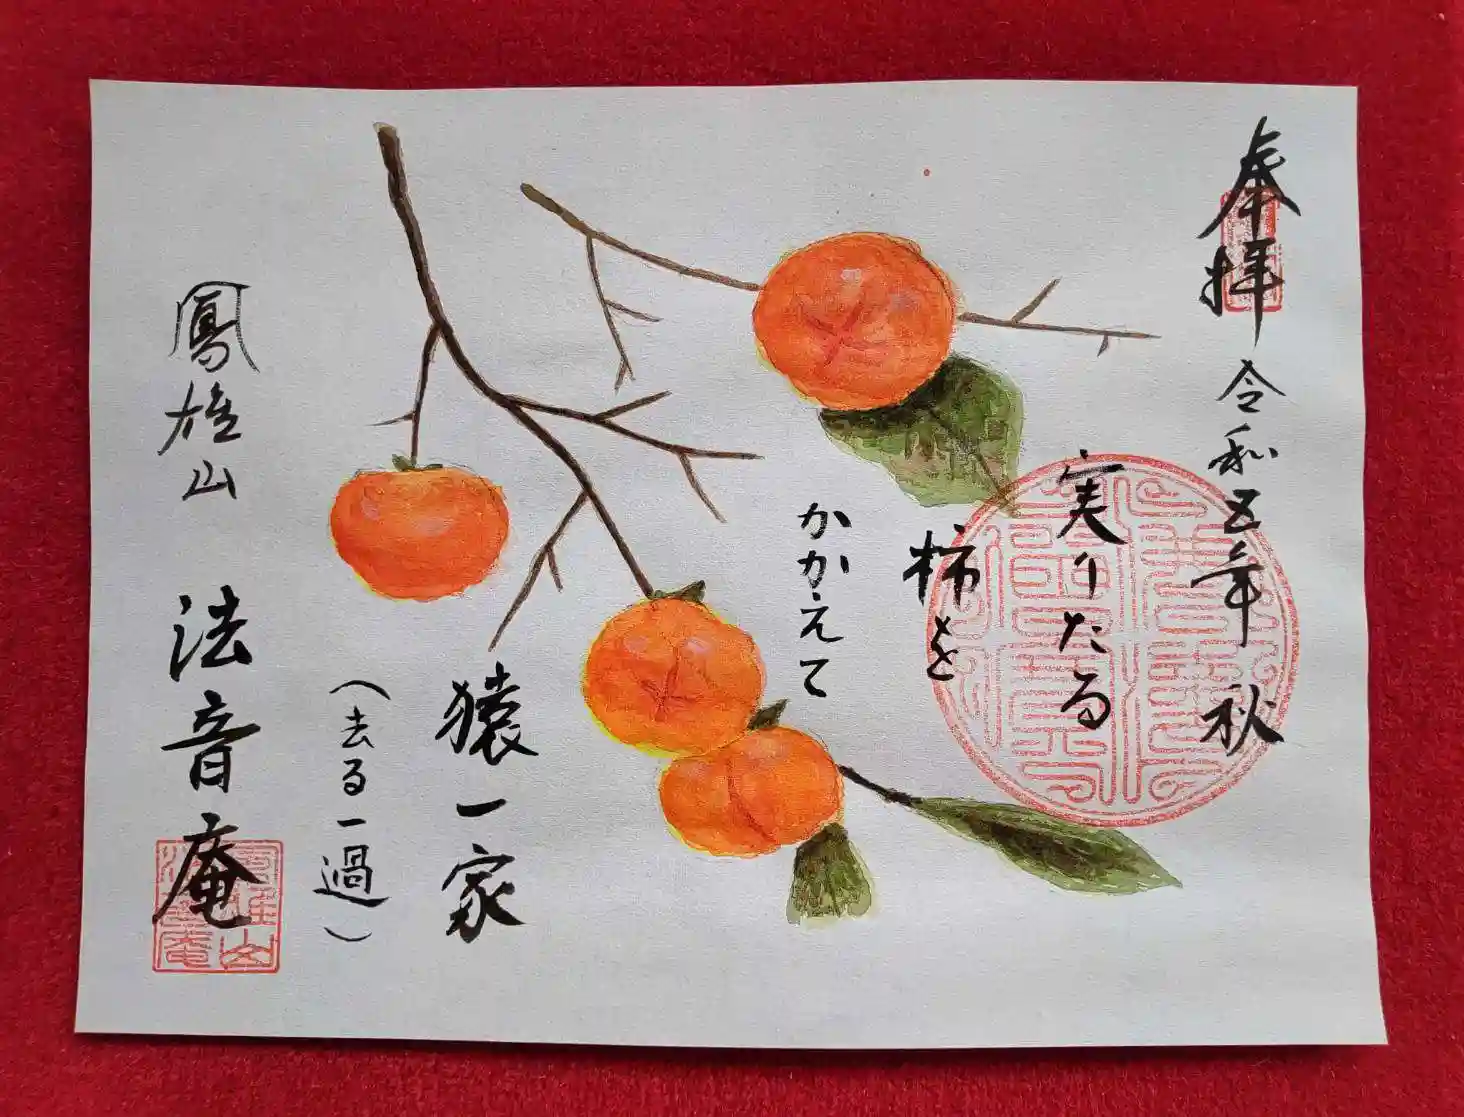 奉拝
令和五年 秋
実りたる
柿を
かかえて
猿一家
(去る一過)
鳳雄山
法音庵